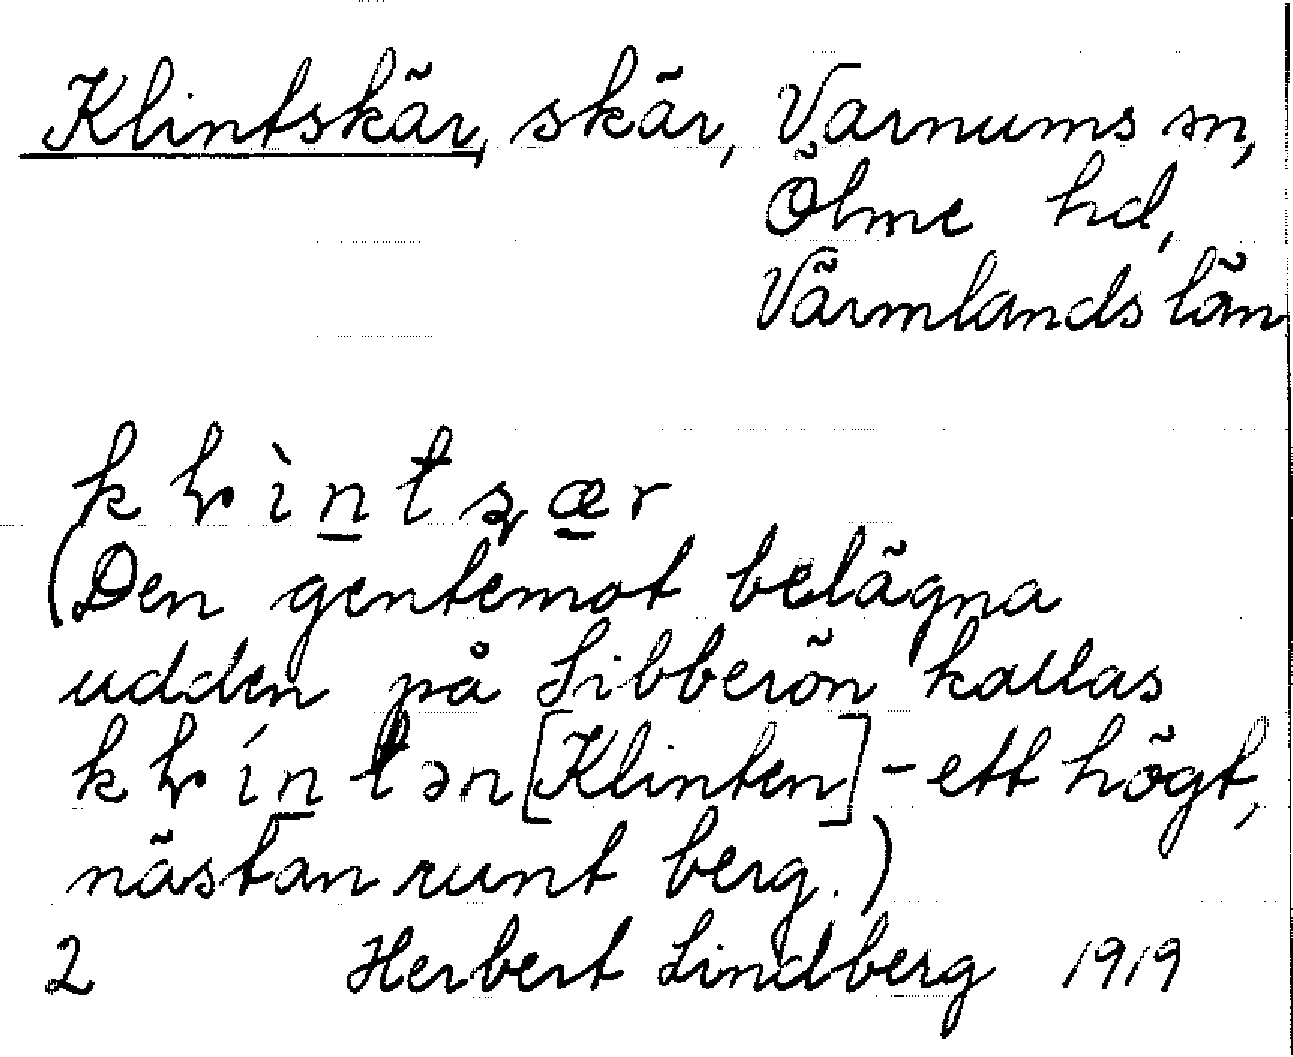 Klintskär, skär, Varnums sn,
Ölme hd,
Värmlands län
(Den gentemot belägna
udden på Sibberön kallas
[Klinten] - ett högt,
nästan runt berg.)
2 Herbert Lindberg 1919